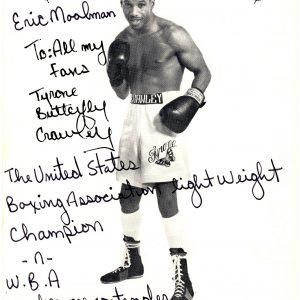 Eric Moolman
To: All my
fans
Tyrone
Butterfly
Crawley
CRAWLEY
Tyrone
The United States
Boxing Association light Weight
Champion
-n-
W.B.A
contender